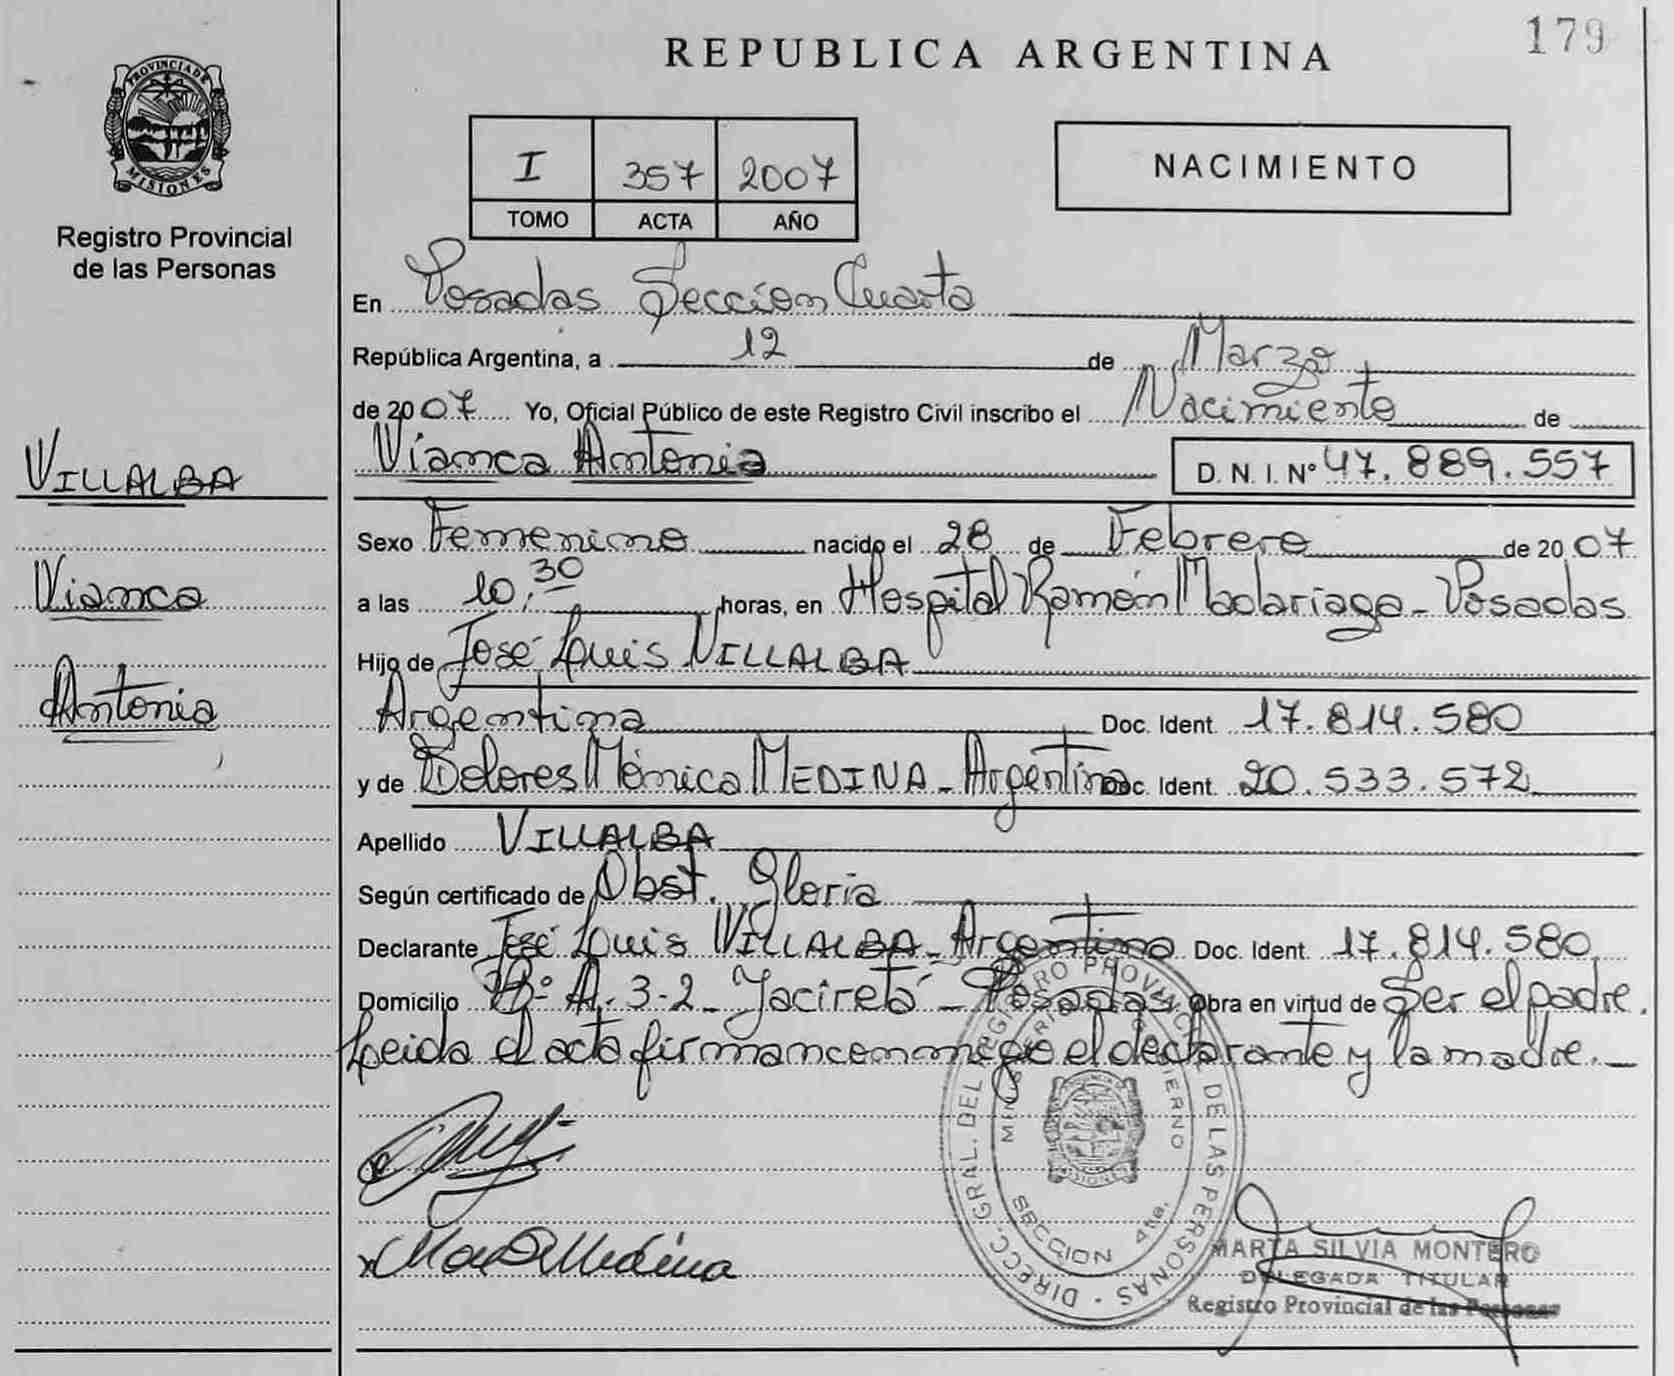 179
REPUBLICA ARGENTINA
PROVINCIA DE
MISIONES
Registro Provincial
de las Personas
I 357 2007
TOMO ACTA AÑO
NACIMIENTO
En Posadas Sección Cuarta
República Argentina, a 12 de Marzo
de 2007 Yo, Oficial Público de este Registro Civil inscribo el Nacimiento de
Vianca Antonia D. N. I. Nº 47.889.557
VILLALBA
Vianca
Antonia
Sexo Femenino nacido el 28 de Febrero de 2007
a las 10:30 horas, en Hospital Ramón Madariaga - Posadas
Hijo de José Luis VILLALBA
Argentina Doc. Ident. 17.814.580
y de Dolores Mónica MEDINA - Argentina Doc. Ident. 20.533.572
Apellido VILLALBA
Según certificado de Obst. Gloria
Declarante José Luis VILLALBA - Argentina Doc. Ident. 17.814.580
Domicilio Bº A-3-2 - Yaciretá - Posadas Obra en virtud de Ser el padre.
Leida el acta firman conmigo el declarante y la madre.
DIRECC. GRAL. DEL REGISTRO PROVINCIAL DE LAS PERSONAS
SECCION 4ta.
MISIONES
Medina
MARTA SILVIA MONTERO
DELEGADA TITULAR
Registro Provincial de las Personas